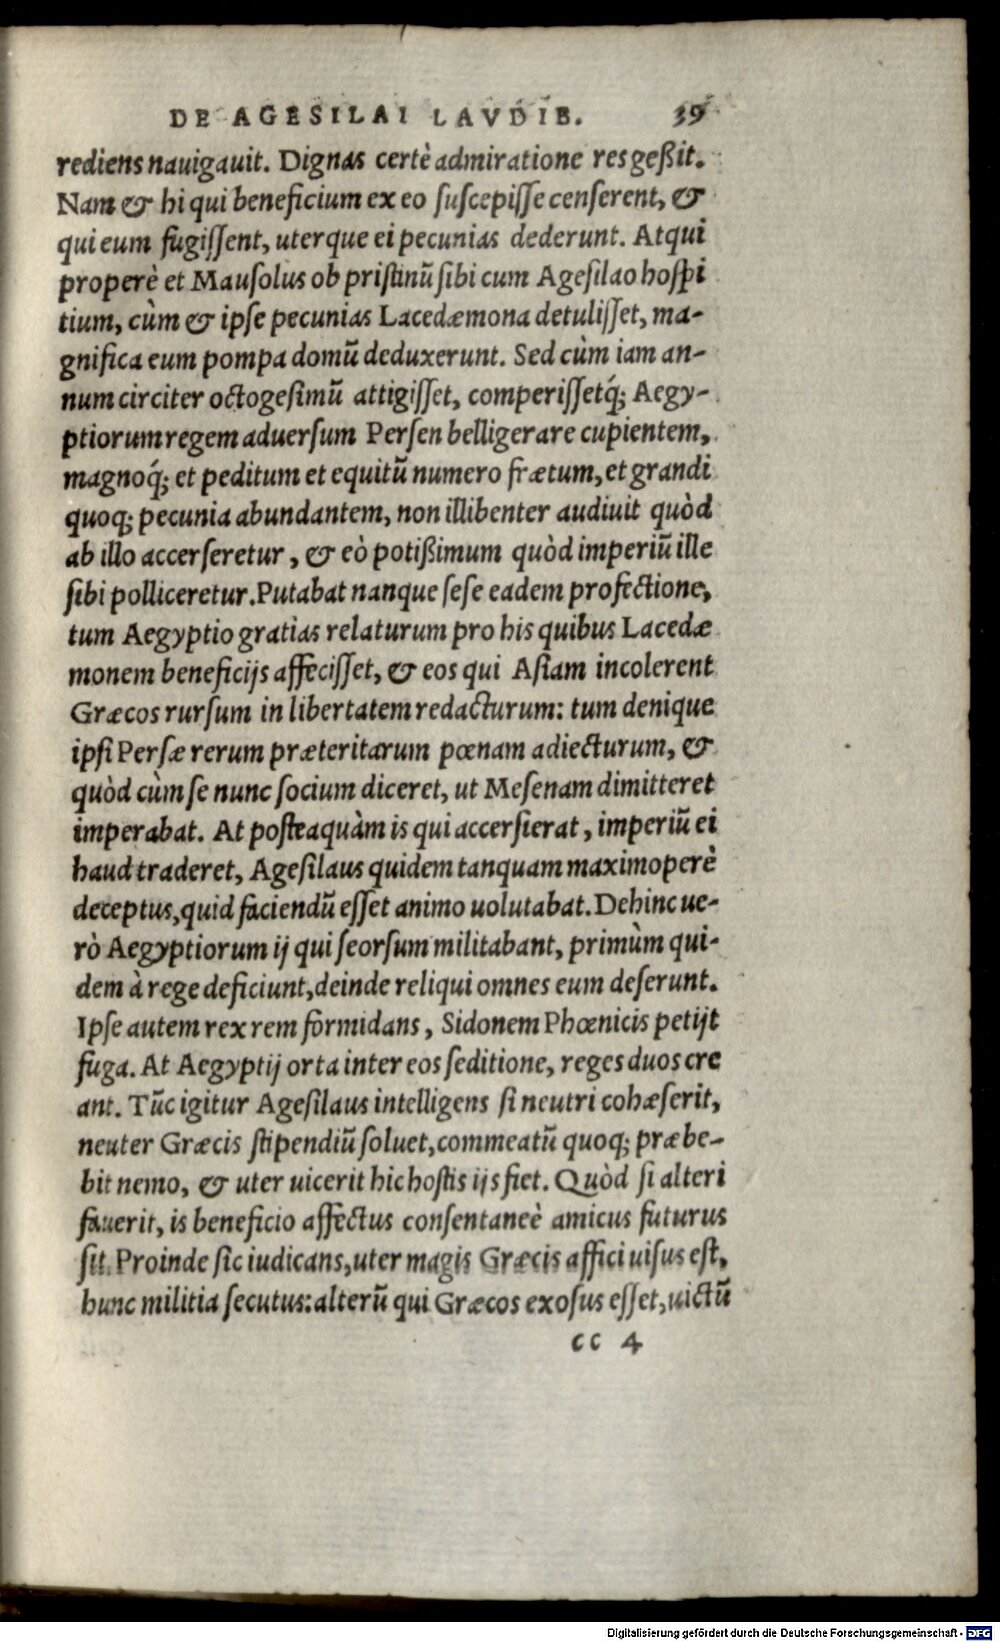 DE AGESILAI LAVDIB. 39
rediens nauigauit. Dignas certè admiratione res geßit.
Nam & hi qui beneficium ex eo ſuſcepiſſe cenſerent, &
qui eum fugiſſent, uterque ei pecunias dederunt. Atqui
properè et Mauſolus ob priſtinū ſibi cum Ageſilao hoſpi
tium, cùm & ipſe pecunias Lacedæmona detuliſſet, ma-
gnifica eum pompa domū deduxerunt. Sed cùm iam an-
num circiter octogeſimū attigiſſet, comperiſſetq́; Aegy-
ptiorum regem aduerſum Perſen belligerare cupientem,
magnoq́; et peditum et equitū numero frætum, et grandi
quoq; pecunia abundantem, non illibenter audiuit quòd
ab illo accerſeretur, & eò potißimum quòd imperiū ille
ſibi polliceretur. Putabat nanque ſeſe eadem profectione,
tum Aegyptio gratias relaturum pro his quibus Lacedæ
monem beneficijs affeciſſet, & eos qui Aſiam incolerent
Græcos rurſum in libertatem redacturum: tum denique
ipſi Perſæ rerum præteritarum pœnam adiecturum, &
quòd cùm ſe nunc ſocium diceret, ut Meſenam dimitteret
imperabat. At poſteaquàm is qui accerſierat, imperiū ei
haud traderet, Ageſilaus quidem tanquam maximoperè
deceptus, quid faciendū eſſet animo uolutabat. Dehinc ue-
rò Aegyptiorum ij qui ſeorſum militabant, primùm qui-
dem à rege deficiunt, deinde reliqui omnes eum deſerunt.
Ipſe autem rex rem formidans, Sidonem Phœnicis petijt
fuga. At Aegyptij orta inter eos ſeditione, reges duos cre
ant. Tūc igitur Ageſilaus intelligens ſi neutri cohæſerit,
neuter Græcis ſtipendiū ſoluet, commeatū quoq; præbe-
bit nemo, & uter uicerit hic hoſtis ijs fiet. Quòd ſi alteri
fauerit, is beneficio affectus conſentaneè amicus futurus
ſit. Proinde ſic iudicans, uter magis Græcis affici uiſus eſt,
hunc militia ſecutus: alterū qui Græcos exoſus eſſet, uictū
cc 4
Digitalisierung gefördert durch die Deutsche Forschungsgemeinschaft - DFG